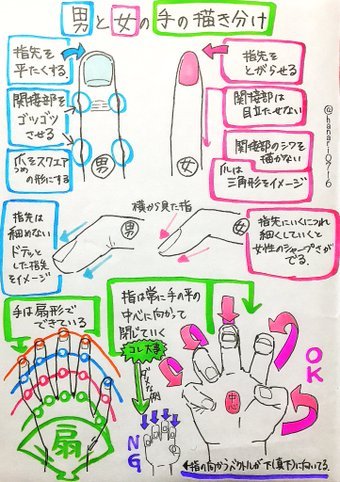 男と女の手の描き分け
指先を
平たくする。
関接部を
ゴツゴツ
させる
爪をスクエア
つめ
の形にする
男
女
指先を
とがらせる
関接部は
目立たせない
関節部のシワを
描かない
爪は
三角形をイメージ
@hanari0716
横から見た指
指先は
細めない
ドテッと
した指先
をイメージ
男
女
指先にいくにつれ
細くしていくと
女性のシャープさが
でる.
手は扇形で
できている
扇
指は常に手の平の
中心に向かって
閉じていく
コレ大事
ダメな例
NG
中心
OK
指の向かうベクトルが下(真下)に向いてる.